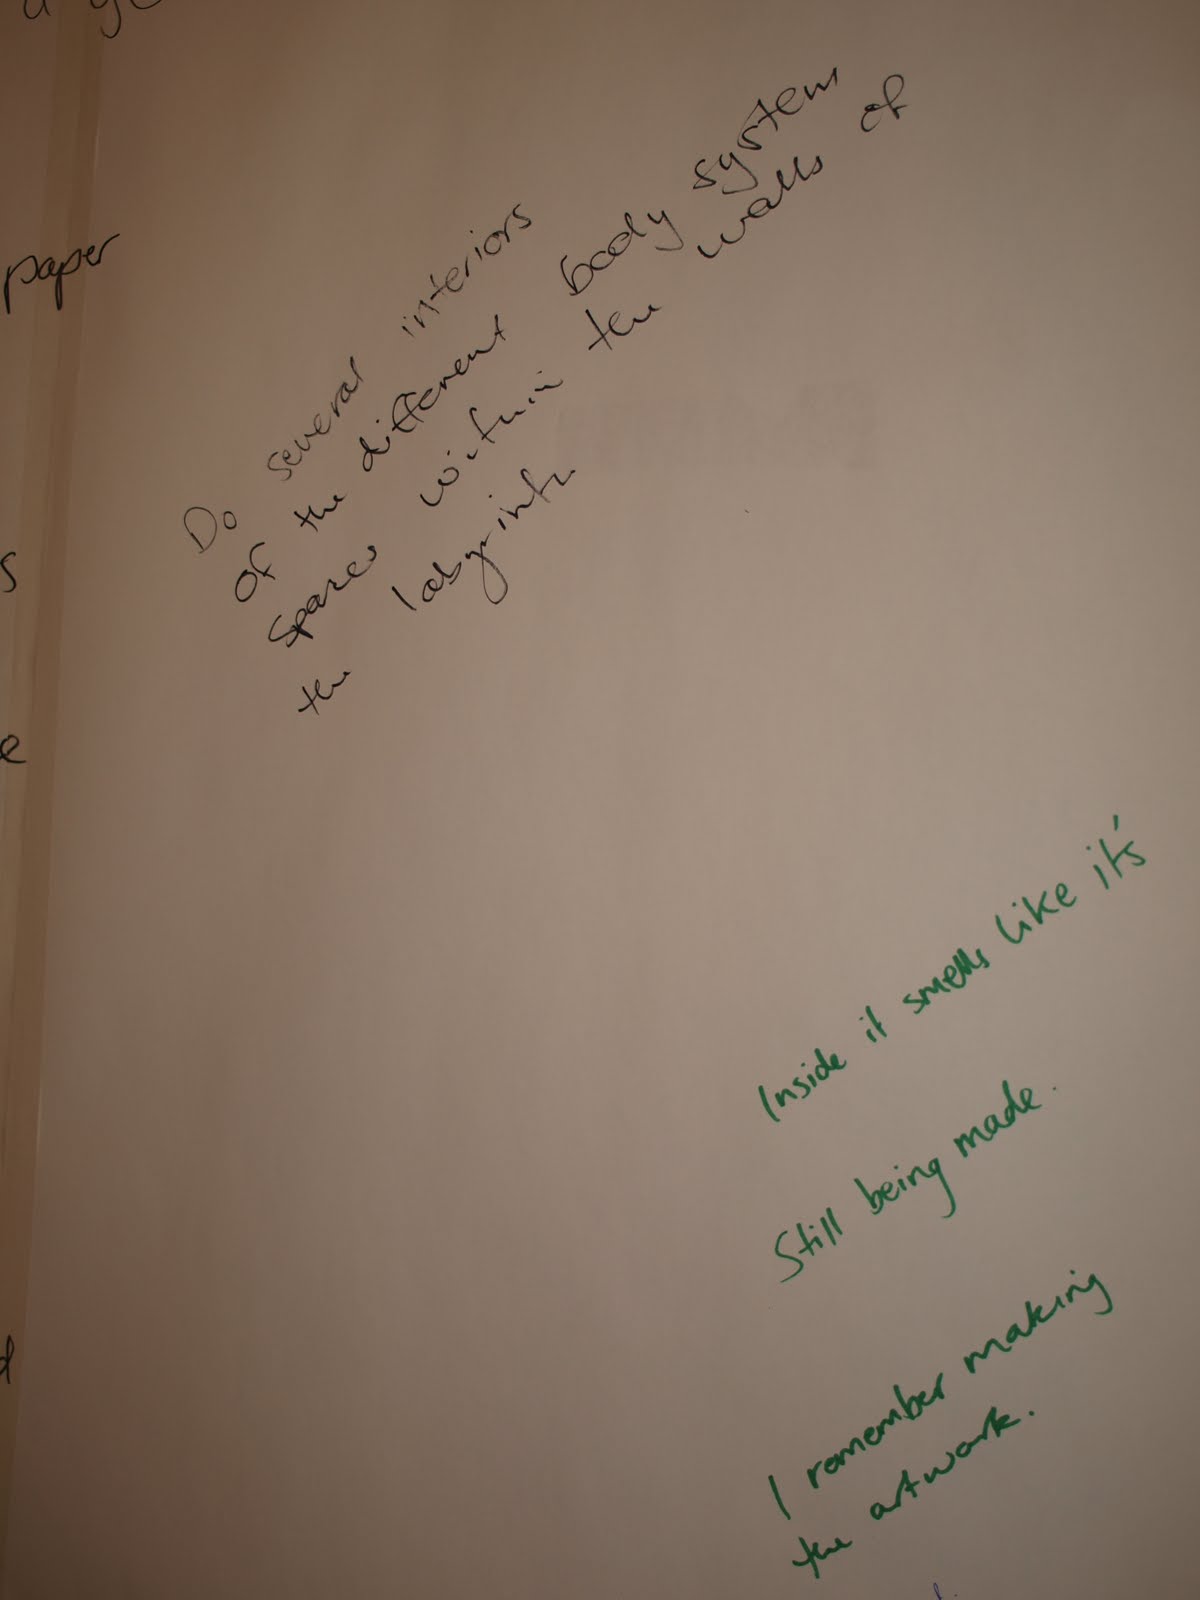 paper
s
e
Do several interiors
of the different body system
spaces within the walls of
the labyrinth
Inside it smells like it's
Still being made.
I remember making
the artwork.